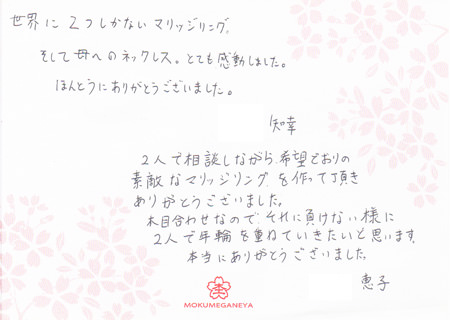 世界に2つしかないマリッジリング。
そして母へのネックレス。とても感動しました。
ほんとうにありがとうございました。
知幸
2人で相談しながら、希望どおりの
素敵なマリッジリングを作って頂き
ありがとうございました。
木目合わせなので、それに負けない様に
2人で年輪を重ねていきたいと思います。
本当にありがとうございました。
恵子
MOKUMEGANEYA